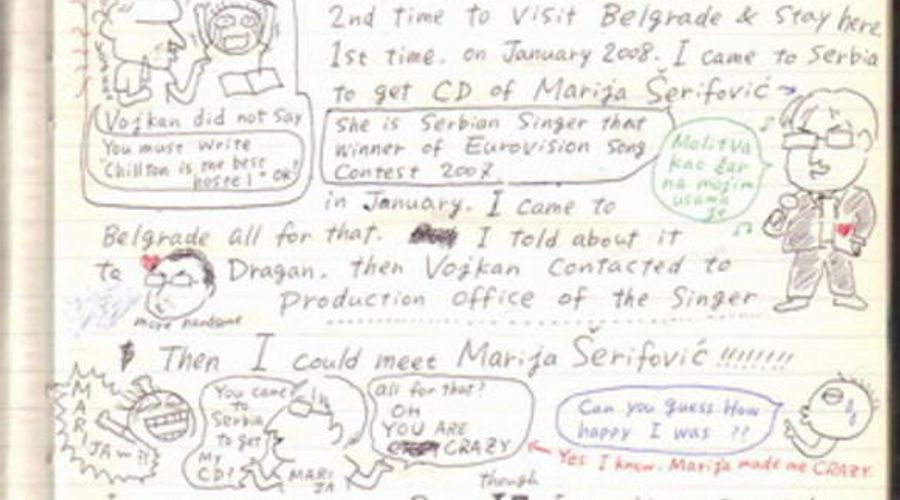 2nd time to visit Belgrade & stay here
1st time. on January 2008. I came to Serbia
to get CD of Marija Šerifović →
Vojkan did not say
You must write
"Chillton is the best
hostel" OK!
She is Serbian Singer that
winner of Eurovision Song
Contest 2007.
Molitva
kao žar
na mojim
usama
in January. I came to
Belgrade all for that. I told about it
to Dragan. then Vojkan contacted to
more handsome
Production office of the Singer
Then I could meet Marija Šerifović !!!!!!!!
MARIJA
You came
to
Serbia
to get
My
CD?
MARI
JA
all for that?
OH
YOU ARE
CRAZY
Can you guess How
happy I was ??
← Yes I know. Marija made me CRAZY.
though